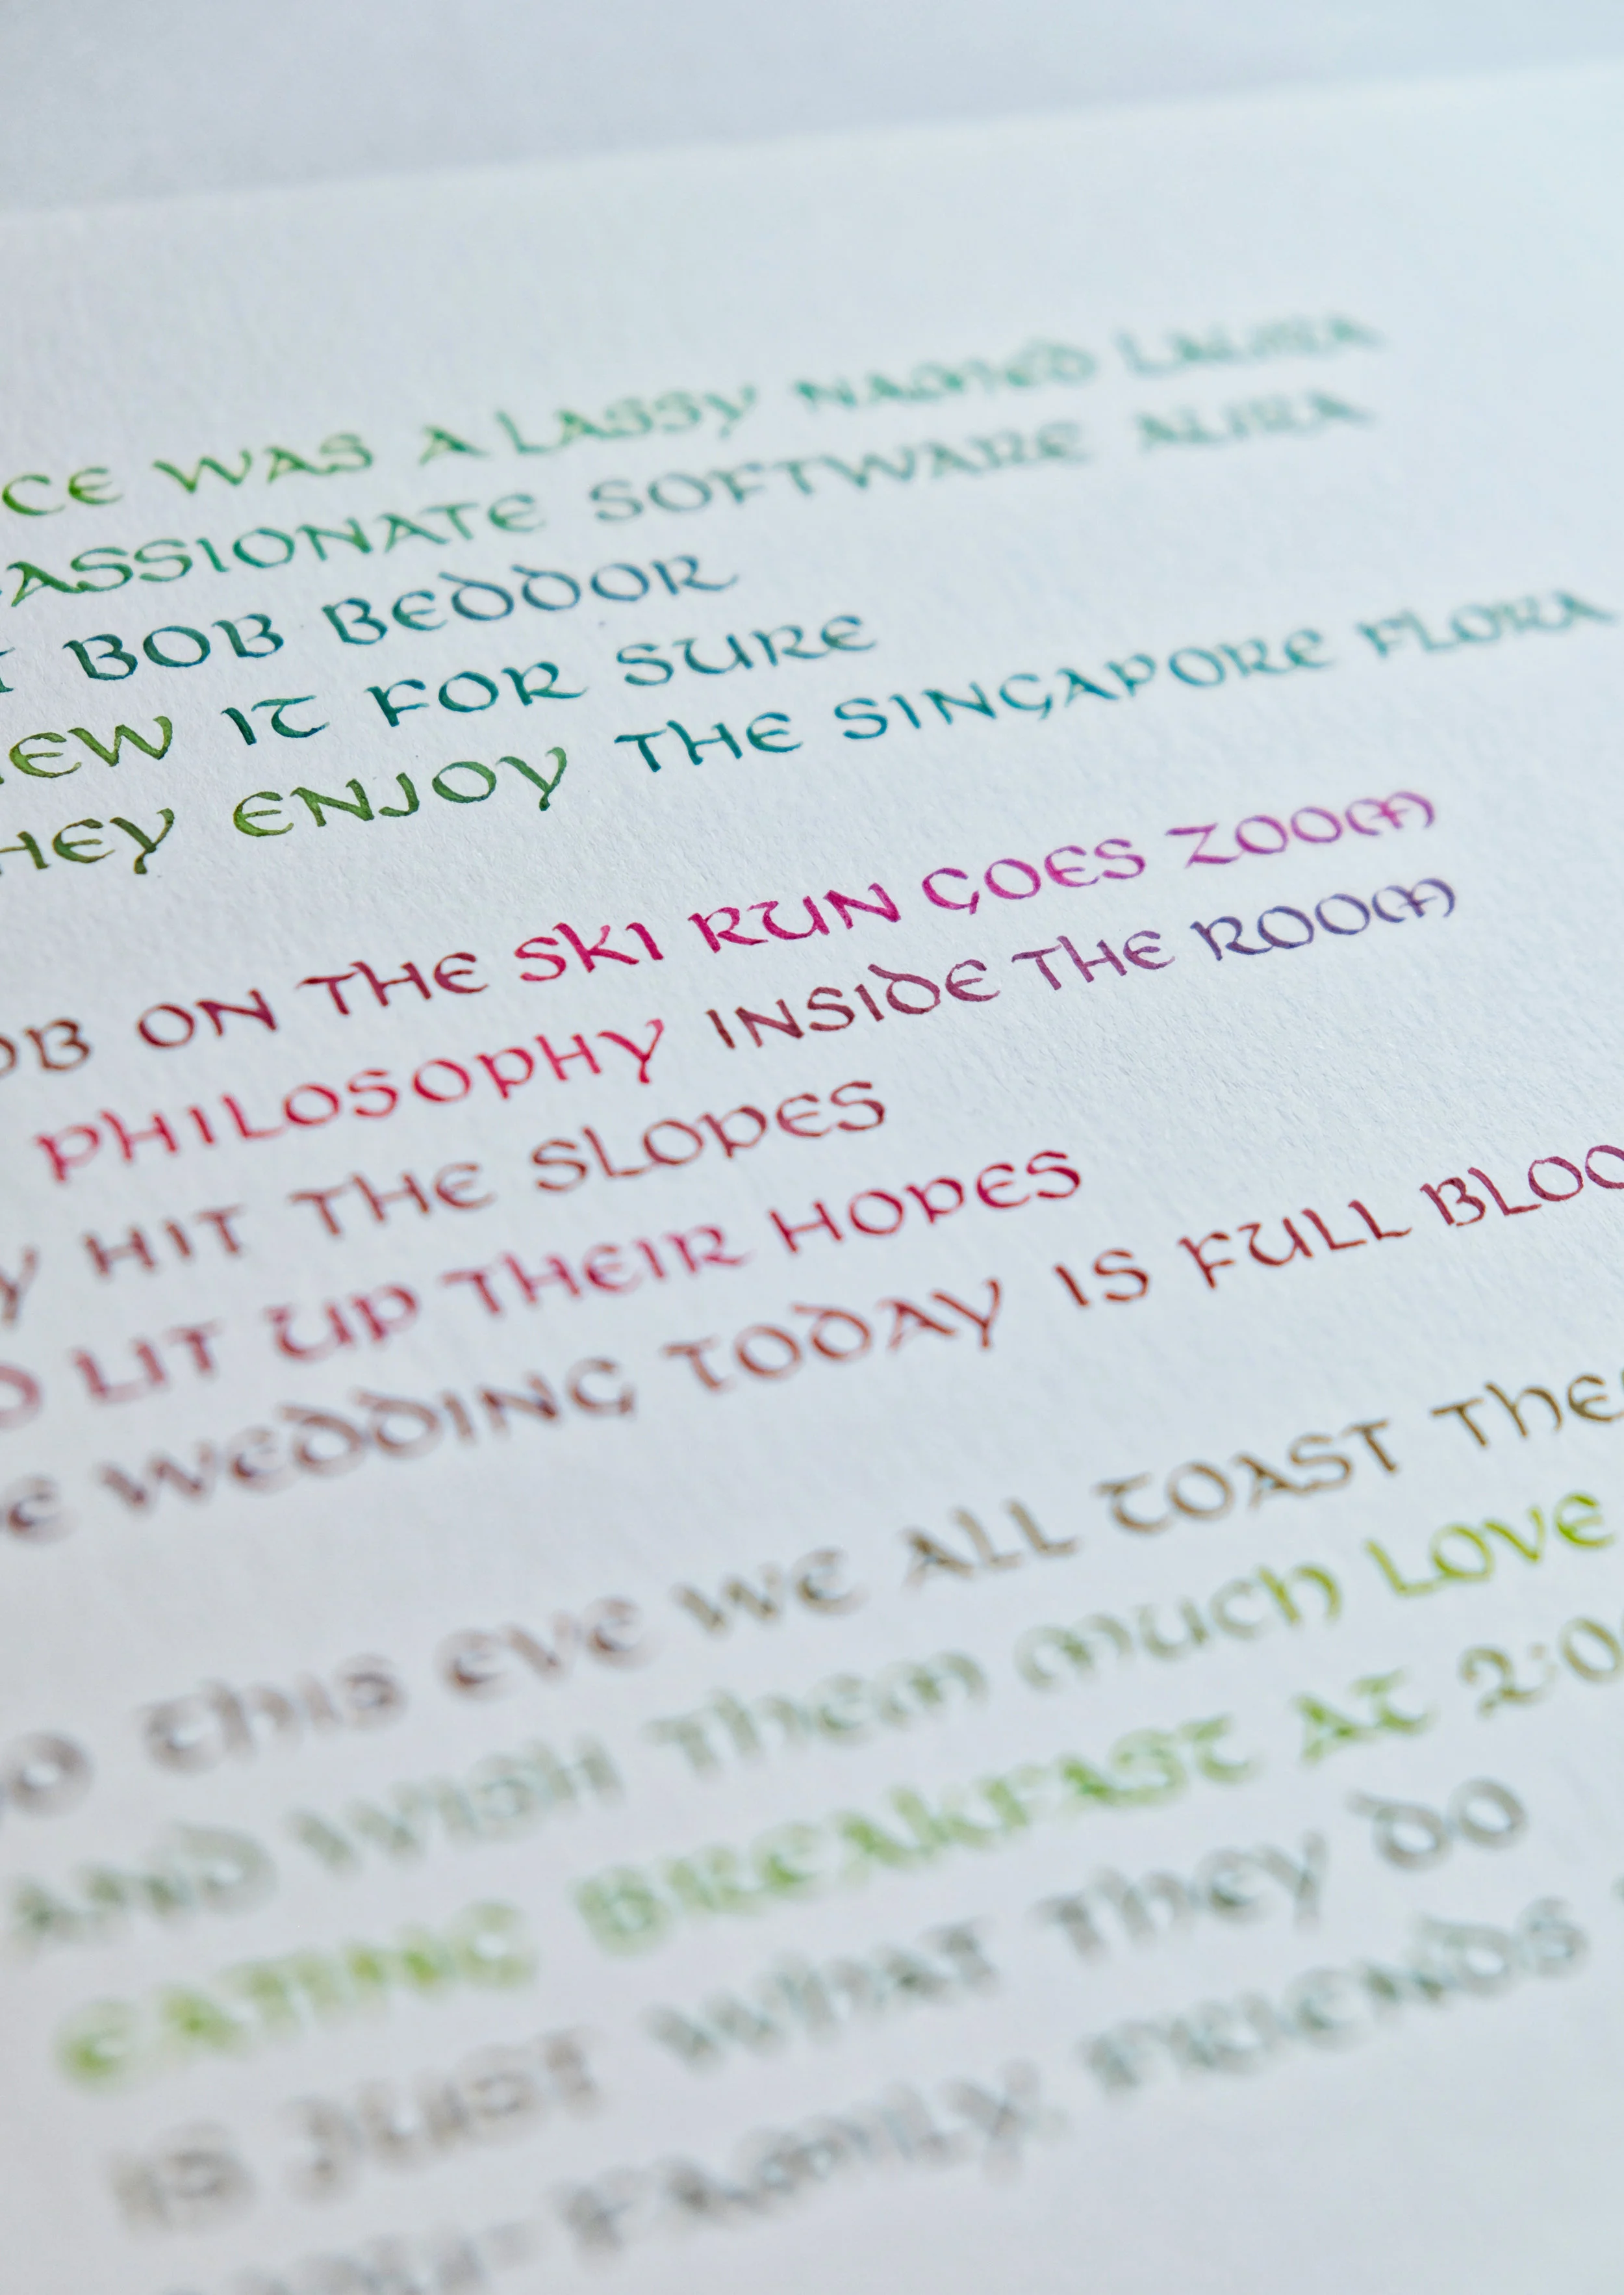 CE WAS A LASSY NAMED LAURA
PASSIONATE SOFTWARE AURA
T BOB BEDDOR
EW IT FOR SURE
HEY ENJOY THE SINGAPORE FLORA
OB ON THE SKI RUN GOES ZOOM
PHILOSOPHY INSIDE THE ROOM
Y HIT THE SLOPES
D LIT UP THEIR HOPES
E WEDDING TODAY IS FULL BLOO
SO THIS EVE WE ALL TOAST THE
AND WISH THEM MUCH LOVE
EATING BREAKFAST AT 2:0
IS JUST WHAT THEY DO
FAMILY, FRIENDS